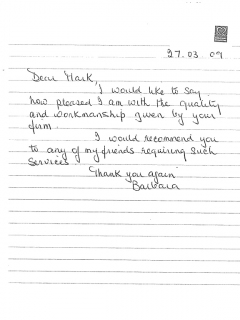 27.03.09
Dear Mark,
I would like to say
how pleased I am with the quality
and workmanship given by your
firm.
I would recommend you
to any of my friends requiring such
services
Thank you again
Barbara